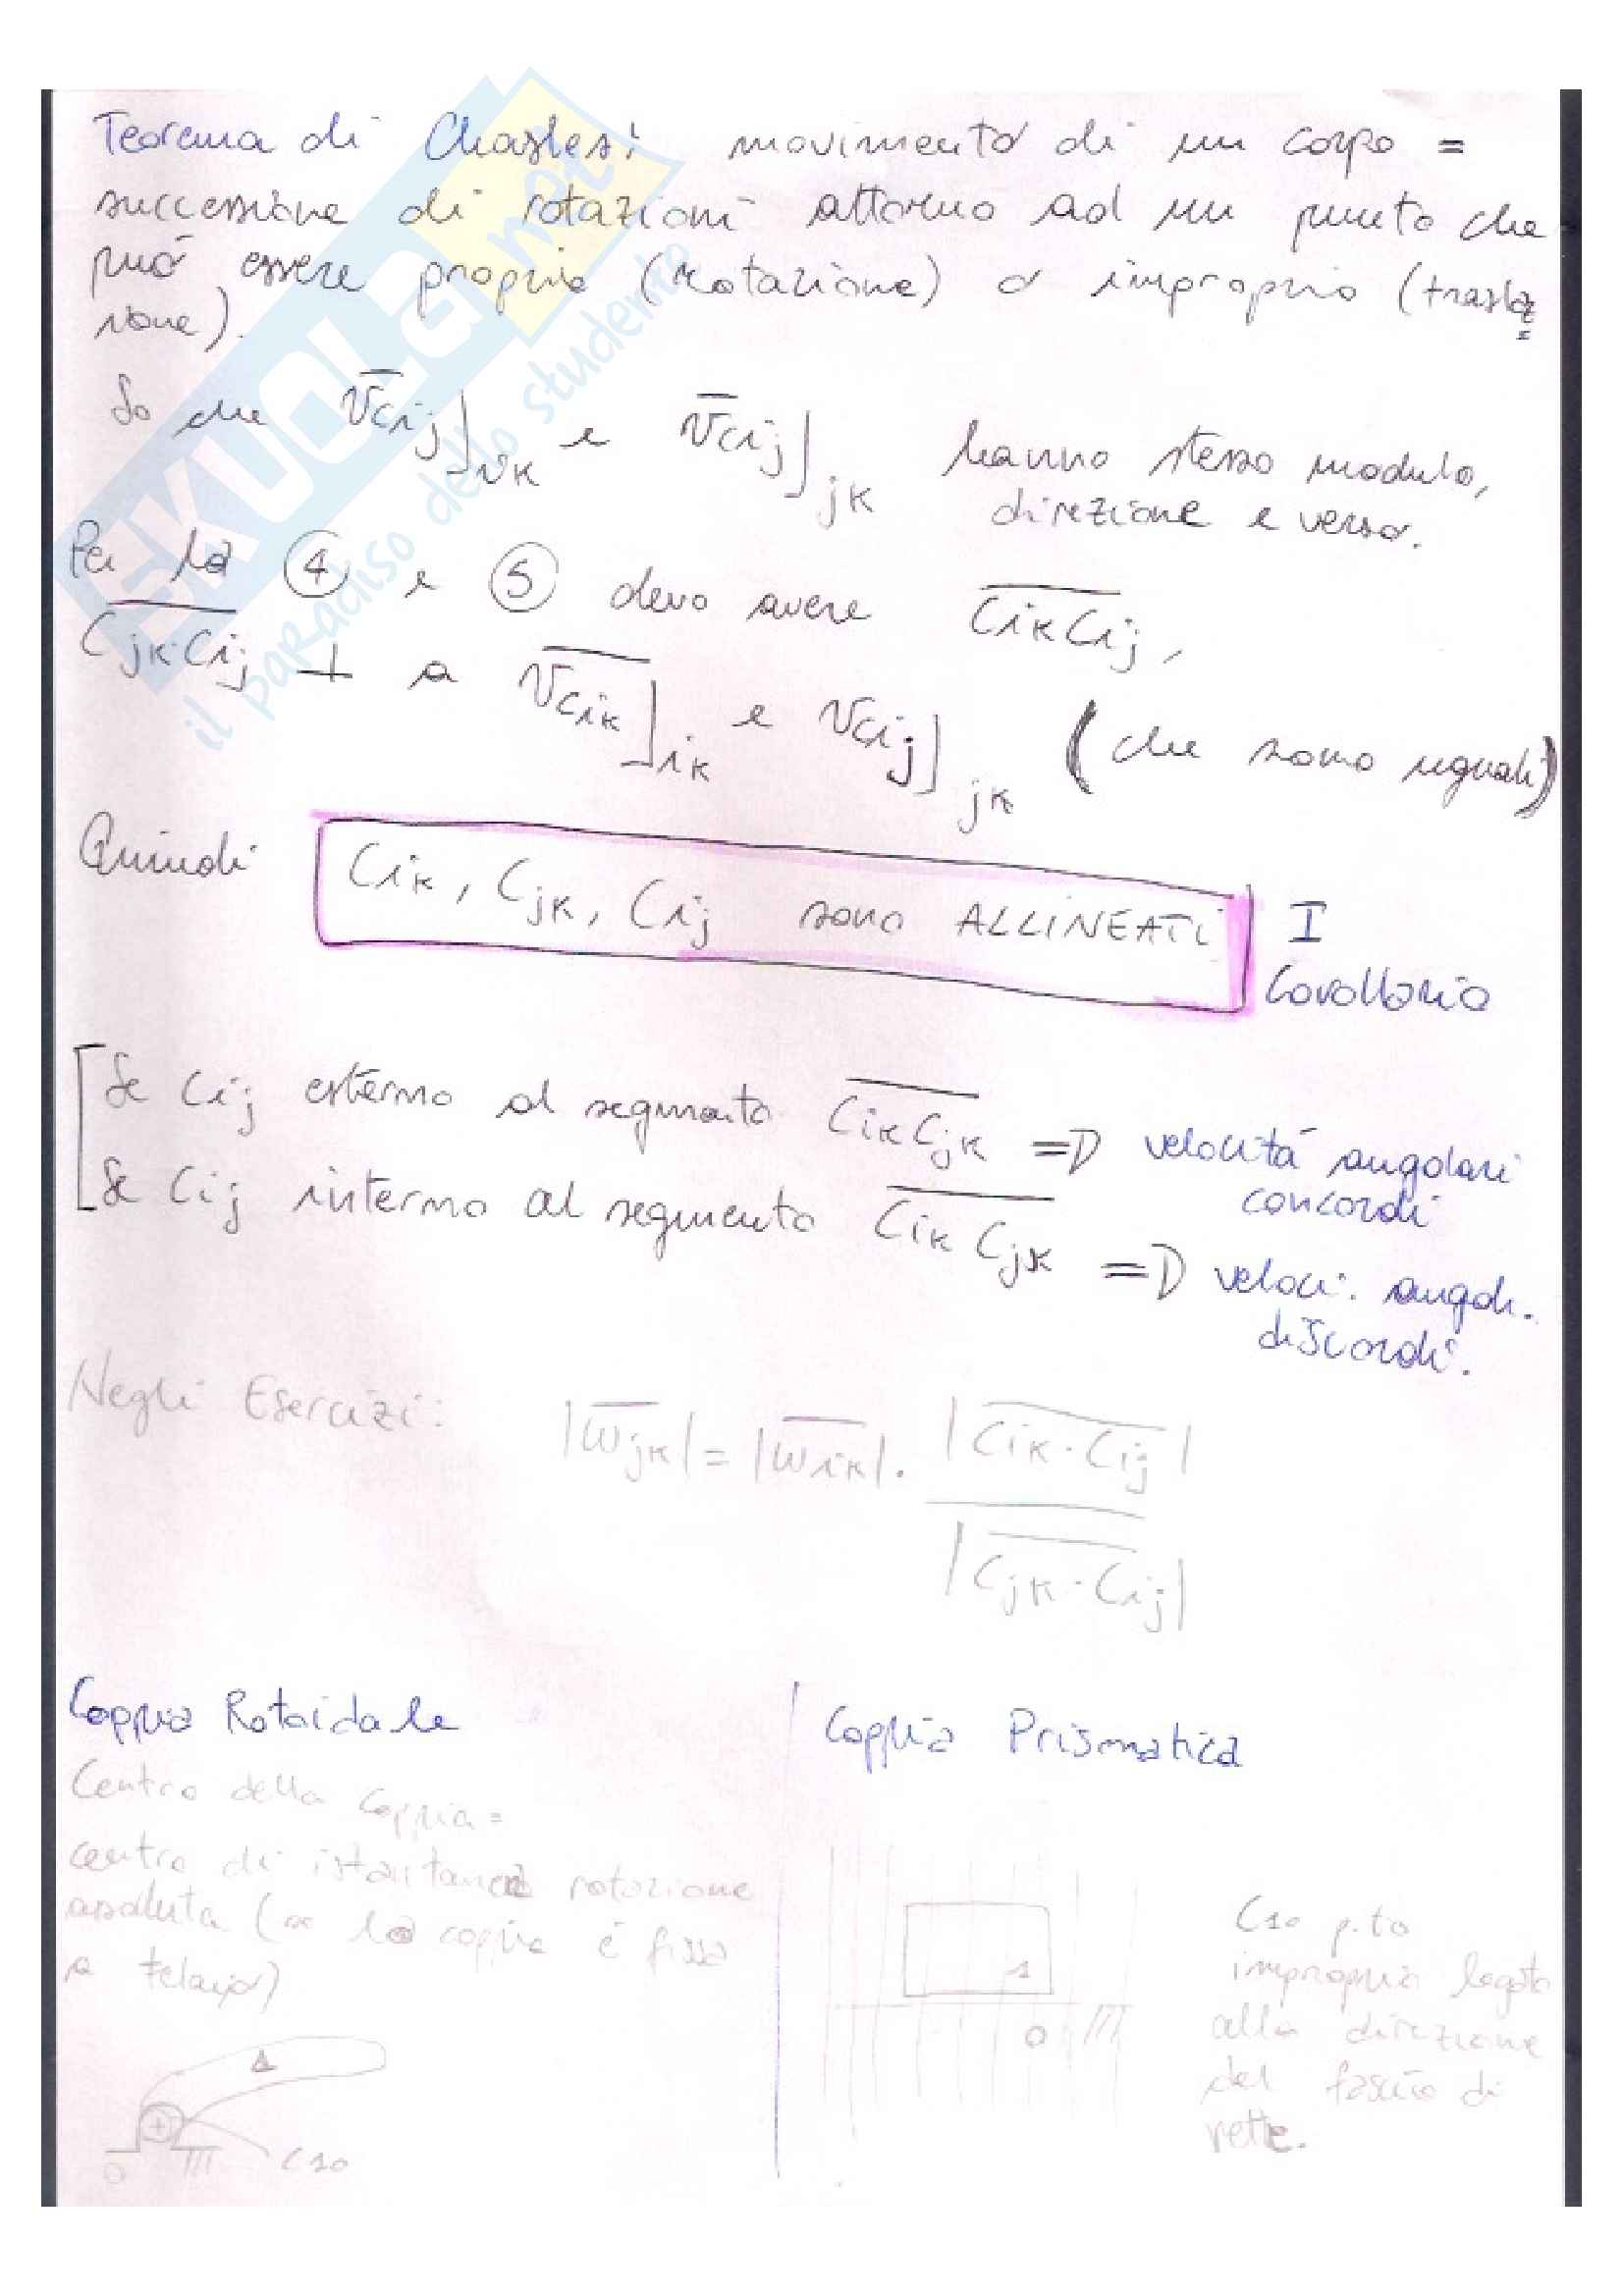 Teorema di Chasles: movimento di un corpo =
successione di rotazioni attorno ad un punto che
può essere proprio (rotazione) o improprio (trasla
zione).
So che v̅Cij]ik e v̅Cij]jk hanno stesso modulo,
direzione e verso.
Per la ④ e ⑤ devo avere C̅i̅k̅C̅i̅j̅,
C̅j̅k̅C̅i̅j̅ ⊥ a v̅Cik]ik e vCij]jk (che sono uguali)
Quindi Cik, Cjk, Cij sono ALLINEATI I
Corollario
Se Cij esterno al segmento C̅i̅k̅C̅j̅k̅ => velocitá angolari
concordi
Se Cij interno al segmento C̅i̅k̅C̅j̅k̅ => veloci. angol.
discordi.
Negli Esercizi: |w̅jk| = |w̅ik| · |C̅i̅k̅·C̅i̅j̅|
|C̅j̅k̅·C̅i̅j̅|
Coppia Rotoidale
Centro della coppia =
centro di istantanea rotazione
assoluta (se la coppia é fissa
a telaio)
1
0
C10
Coppia Prismatica
1
0
C10 p.to
improprio legato
alla direzione
del fascio di
rette.
SKUOLA.net
il paradiso dello studente